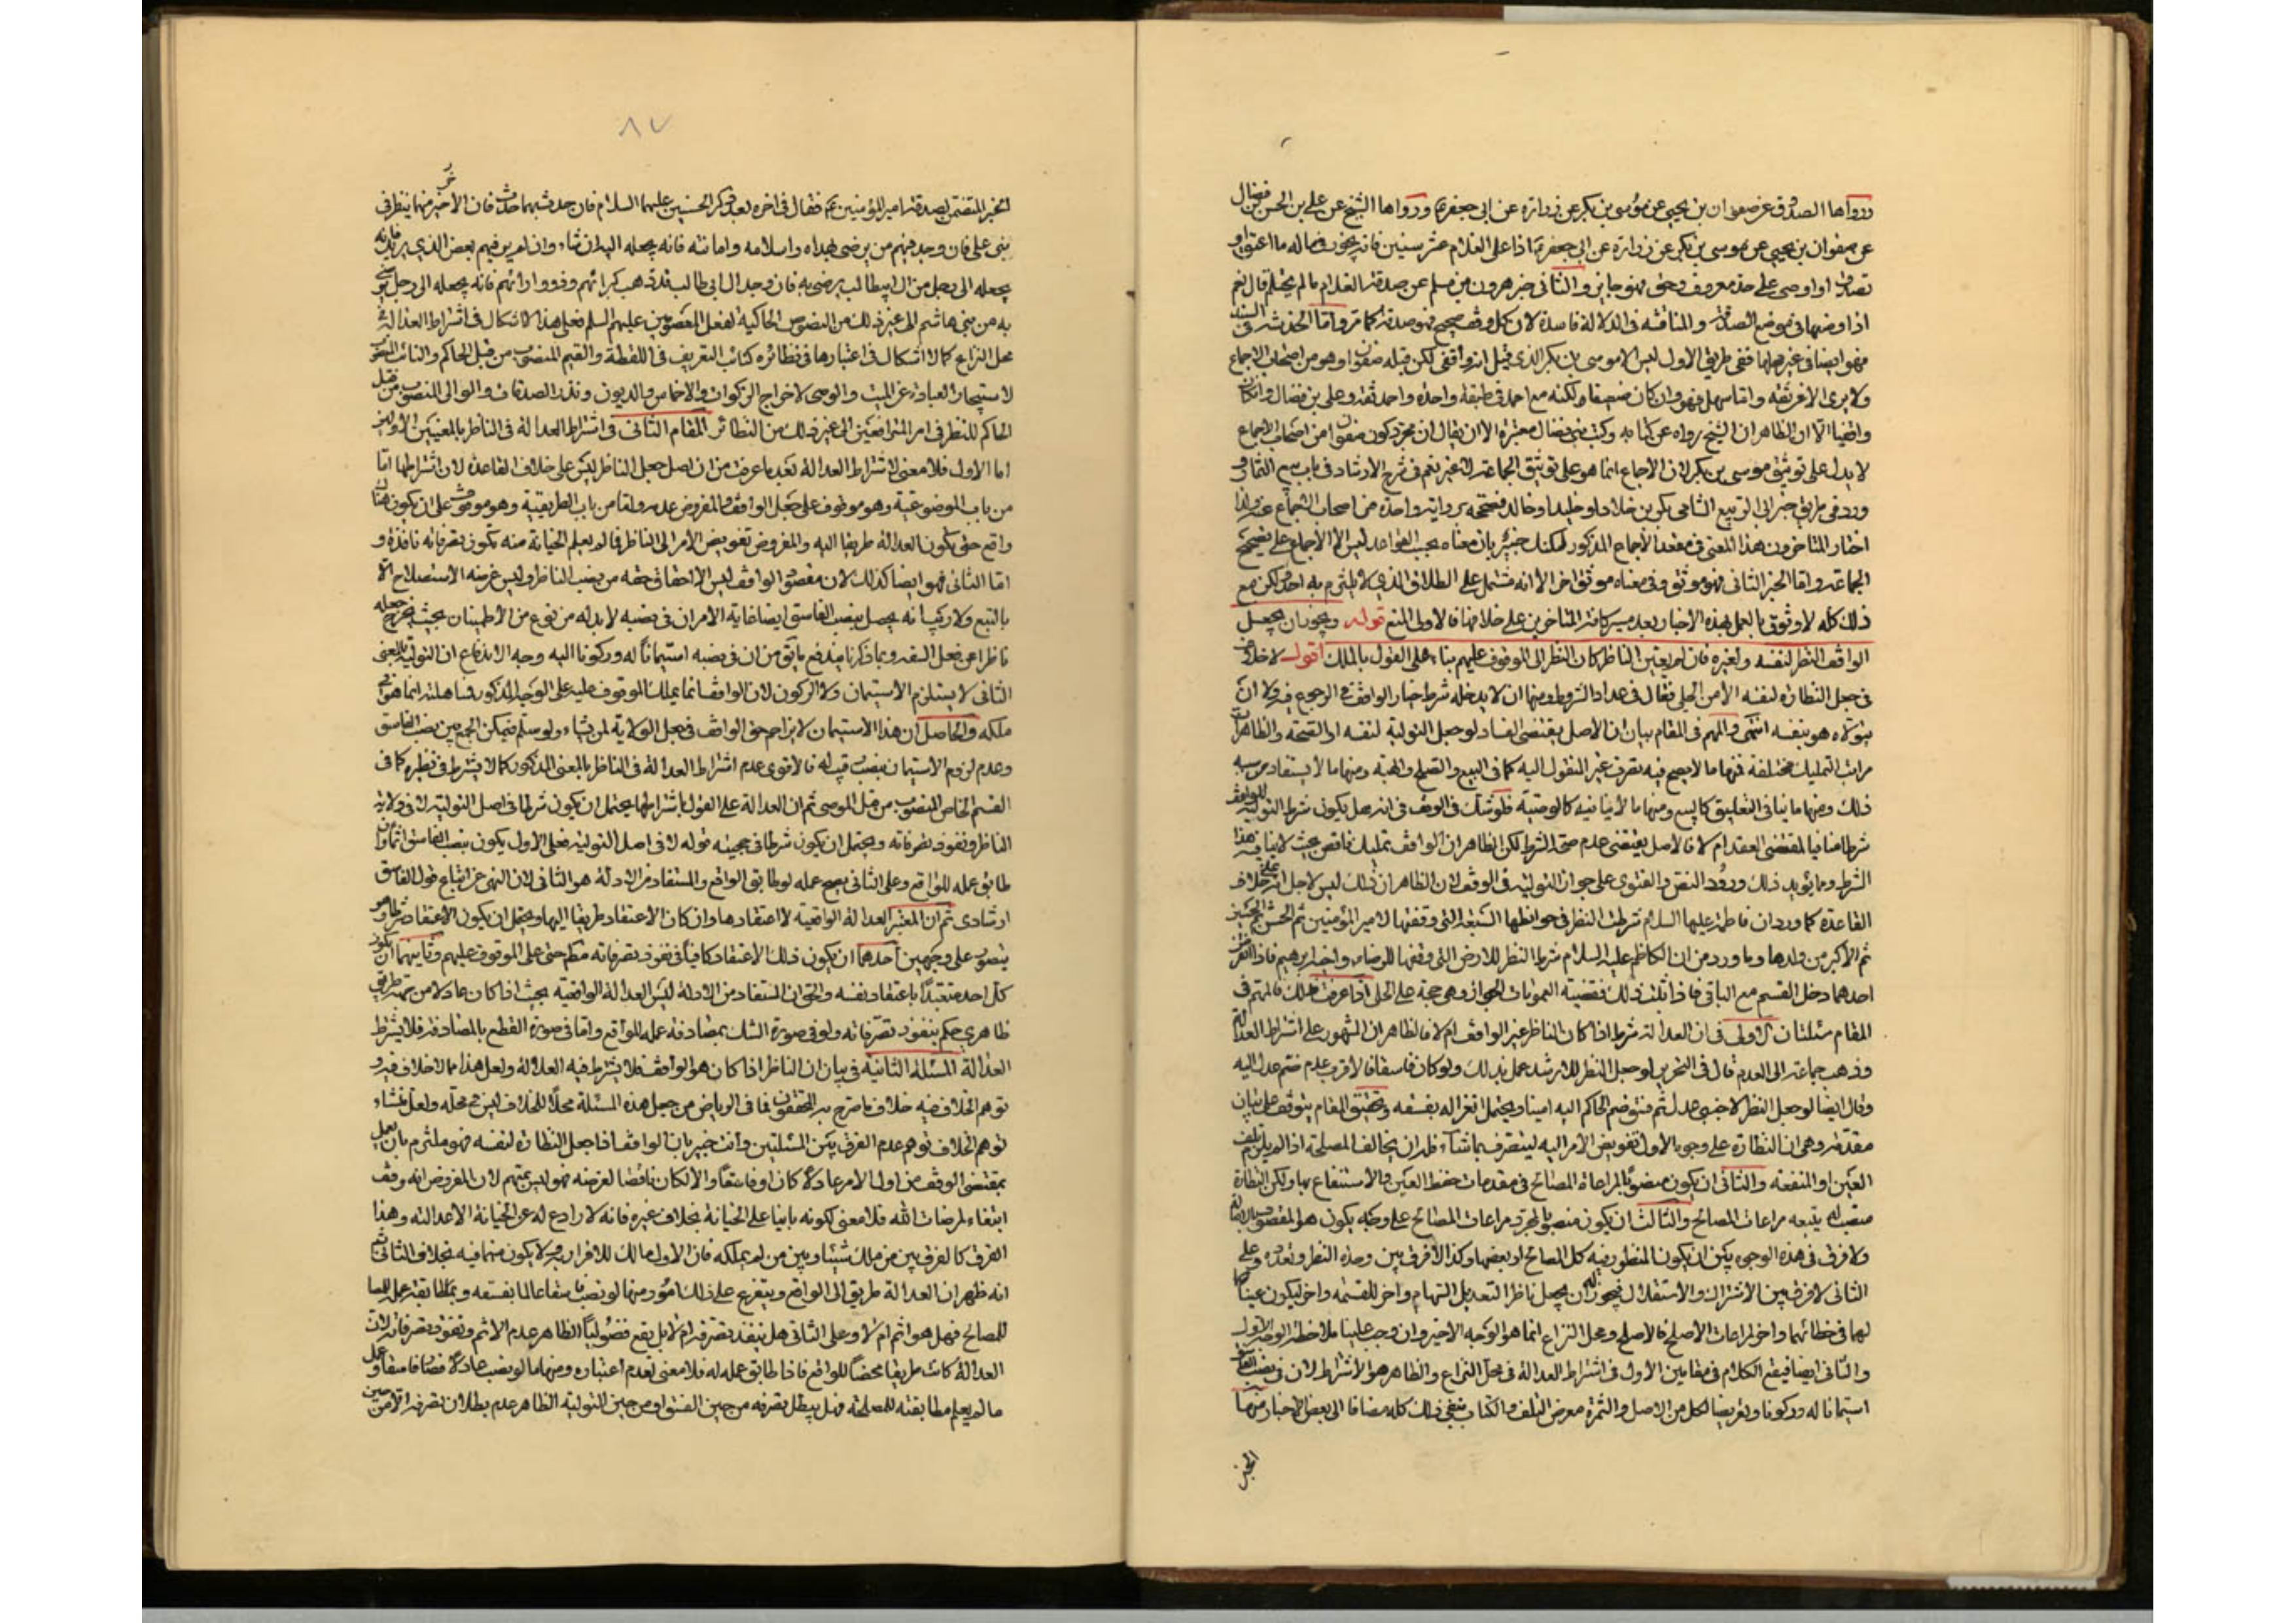 ورواها الصدوق عن صفوان بن يحيى عن موسى بن بكر عن زرارة عن ابى جعفر ع ورواها الشيخ عن على بن الحسن فضال
عن صفوان بن يحيى عن موسى بن بكر عن زرارة عن ابى جعفر ع اذا اتى على الغلام عشر سنين فانه يجوز فى ماله ما اعتق او
تصدق او اوصى على حد معروف وحق فهو جايز والثانى خبر هرون بن مسلم عن صدقة الغلام ما لم يحتلم قال نعم
اذا وضعها فى موضع الصدقة والمناقشة فى الدلالة فاسدة لان كل وقف صحيح فهو صدقة كما مر واما الخدشة فى السند
فهو ايضا فى غير محلها ففى طريق الاول ليس الا موسى بن بكر الذى قيل انه واقفى لكن قبله صفوان وهو من اصحاب الاجماع
ولا يروى الا عن ثقة واما سهل فهو وان كان ضعيفا ولكنه مع احمد فى طبقة واحدة واحمد ثقة وعلى بن فضال وان كان
واقفيا الا ان الظاهر ان الشيخ رواه عن كتابه وكتب بنى فضال معتبرة الا ان يقال ان مجرد كون صفوان من اصحاب الاجماع
لا يدل على توثيق موسى بن بكر لان الاجماع انما هو على توثيق الجماعة لا غير نعم فى شرح الارشاد فى باب بيع الثمار و
ورد فى طريق خبر ابى الربيع الشامى بكون خلاد او خليد او خالد فصححه برواية واحدة من اصحاب الاجماع عنه ولذا
اختار المتاخرون هذا المعنى فى معقد الاجماع المذكور لكنك خبير بان معناه بحسب القواعد ليس الا الاجماع على تصحيح
الجماعة واما الخبر الثانى فهو موثق وفى معناه موثق اخر الا انه مشتمل على الطلاق الذى لا يلتزم به احد لكن مع
ذلك كله لا وثوق بالعمل بهذه الاخبار بعد مسير كافة المتاخرين على خلافها فالاولى المنع قوله ويجوز ان يجعل
الواقف النظر لنفسه ولغيره فان لم يعين الناظر كان النظر الى الموقوف عليهم بناء على القول بالملك اقول لا خلاف
فى جعل النظارة لنفسه الا من الحلى فقال فى عداد الشروط ومنها ان لا يدخله شرط خيار الواقف فى الرجوع فيه ولا ان
يتولاه هو بنفسه انتهى والمهم فى المقام بيان ان الاصل يقتضى الفساد لو جعل التولية لنفسه او الصحة والظاهر ان
مراتب التمليك مختلفة فمنها ما لا يصح فيه تصرف غير المنقول اليه كما فى البيع والصلح والهبة ومنها ما لا يستفاد من سببه
ذلك ومنها ما ينافى التعليق كالبيع ومنها ما لا ينافيه كالوصية فلو شك فى الوقف فى انه هل يكون شرط التولية للواقف
شرطا منافيا لمقتضى العقد ام لا فالاصل يقتضى عدم صحة الشرط لكن الظاهر ان الواقف تمليك ناقص بحيث لا ينافيه هذا
الشرط ومما يؤيد ذلك ورود النص والفتوى على جواز التولية فى الوقف لان الظاهر ان ذلك ليس لاجل انه على خلاف
القاعدة كما ورد ان فاطمة عليها السلام شرطت النظر فى حوائطها السبعة التى وقفتها لامير المؤمنين ثم الحسن ثم الحسين
ثم الاكبر من ولدها وما ورد من ان الكاظم عليه السلام شرط النظر للارض التى وقفها للرضاء واخيه ابرهيم فاذا انقرض
احدهما دخل القسم مع الباقى فاذا ثبت ذلك فقضية العمومات الجواز وهى حجة على الحلى اذا عرفت ذلك فالمهم فى
المقام مسئلتان الاولى فى ان العدالة شرط اذا كان الناظر غير الواقف ام لا فالظاهر ان المشهور على اشتراط العدالة
وذهب جماعة الى العدم قال فى التحرير لو جعل النظر للارشد عمل بذلك ولو كان فاسقا فالاقرب عدم ضم عدل اليه
وقال ايضا لو جعل النظر لاجنبى عدل ثم فسق ضم الحاكم اليه امينا ويحتمل انعزاله بفسقه وتحقيق المقام يتوقف على بيان
مقدمة وهى ان النظارة على وجوه الاول تفويض الامر اليه ليتصرف بما شاء فله ان يخالف المصلحة اذا لم يتلف
العين او المنفعة والثانى ان يكون منصوبا لمراعاة المصالح فى مقدمات حفظ العين والاستنفاع بها ولكن النظارة
منصب له يتبعه مراعات المصالح والثالث ان يكون منصوبا لمجرد مراعات المصالح على وجه يكون هو المقصود بالاصالة
ولا فرق فى هذه الوجوه بين ان يكون المنظور فيه كل المصالح او بعضها وكذا لا فرق بين وحدة النظر وتعدده وعلى
الثانى لا فرق بين الاشتراك والاستقلال فيجوز له ان يجعل ناظرا لتعديل السهام واخر للقسمة واخر ليكون عينا
لهما فى خطائهما واخر لمراعات الاصلح فالاصلح ومحل النزاع انما هو الوجه الاخير وان وجب علينا ملاحظة الوجه الاول
والثانى ايضا فيقع الكلام فى مقامين الاول فى اشتراط العدالة فى محل النزاع والظاهر هو الاشتراط لان فى نصب الفاسق
استيمانا له وركونا وتعريضا لكل من الاصل والثمرة معرض التلف والكتاب ينفى ذلك كله مضافا الى بعض الاخبار منها
الخبر
٨٧
الخبر المتضمن لصدقة امير المؤمنين ع فقال فى اخره بعد ذكر الحسنين عليهما السلام فان حدث بهما حدث فان الاخر منهما ينظر فى
بنى على فان وجد فيهم من يرضى بهداه واسلامه وامانته فانه يجعله اليه ان شاء وان لم ير فيهم بعض الذى يريد فانه
يجعله الى رجل من ال ابيطالب يرضى به فان وجد ال ابى طالب قد ذهب كبرائهم وذووا ارائهم فانه يجعله الى رجل يرضى
به من بنى هاشم الى غير ذلك من النصوص الحاكية لفعل المعصومين عليهم السلم فعلى هذا لا اشكال فى اشتراط العدالة فى
محل النزاع كما لا اشكال فى اعتبارها فى نظائره كنائب التعريف فى اللقطة والقيم المنصوب من قبل الحاكم والنائب المنصوب
لاستيجار العبادة عن الميت والوصى لاخراج الزكوات والاخماس والديون ونذر الصدقات والوالى المنصوب من قبل
الحاكم للنظر فى امر المترافعين الى غير ذلك من النظائر المقام الثانى فى اشتراط العدالة فى الناظر بالمعنيين الاولين
اما الاول فلا معنى لاشتراط العدالة بعد ما عرفت من ان اصل جعل الناظر ليس على خلاف القاعدة لان اشتراطها اما
من باب الموضوعية وهو موقوف على جعل الواقف والمفروض عدمه واما من باب الطريقية وهو موقوف على ان يكون هناك
واقع حتى يكون العدالة طريقا اليه والمفروض تفويض الامر الى الناظر فما لم يعلم الخيانة منه تكون تصرفاته نافذة و
اما الثانى فهو ايضا كذلك لان مقصود الواقف ليس الا احقاق حقه من نصب الناظر وليس غرضه الاستصلاح الا
بالتبع ولا ريب انه يحصل بنصب الفاسق ايضا غاية الامر ان فى نصبه لا بد له من نوع من الاطمينان بحيث يخرج جعله
ناظرا عن جعل السفه وبما ذكرنا يندفع ما يق من ان فى نصبه استيمانا له وركونا اليه وجه الاندفاع ان التولية بالمعنى
الثانى لا يستلزم الاستيمان ولا الركون لان الواقف انما يملك الموقوف عليه على الوجه المذكور فمساهلته انما هو فى
ملكه والحاصل ان هذا الاستيمان لا يزاحم حق الواقف فى جعل الولاية لمن يشاء ولو سلم فيمكن الجمع بين نصب الفاسق
وعدم لزوم الاستيمان بنصب رقيب له فالاقوى عدم اشتراط العدالة فى الناظر بالمعنى المذكور كما لا يشترط فى نظيره كما فى
القسم الخاص المنصوب من قبل الموصى ثم ان العدالة على القول باشتراطها يحتمل ان يكون شرطا فى اصل التولية لا فى ولاية
الناظر ونفوذ تصرفاته ويحتمل ان يكون شرطا فى حجية قوله لا فى اصل التولية فعلى الاول يكون نصب الفاسق اثما وان
طابق عمله للواقع وعلى الثانى يصح عمله لو طابق الواقع والمستفاد من الادلة هو الثانى لان النهى عن اتباع قول الفاسق
ارشادى ثم ان المعتبر العدالة الواقعية لا اعتقادها وان كان الاعتقاد طريقا اليها ويحتمل ان يكون الاعتقاد شرطا وهو
يتصور على وجهين احدهما ان يكون ذلك الاعتقاد كافيا فى نفوذ تصرفاته مطلقا حتى على الموقوف عليهم وثانيهما ان يكون
كل احد متعبدا باعتقاد نفسه والحق ان المستفاد من الادلة ليس العدالة الواقعية بحيث اذا كان عادلا من جهة طريق
ظاهرى حكم بنفوذ تصرفاته ولو فى صورة الشك بمصادفة عمله للواقع واما فى صورة القطع بالمصادفة فلا يشترط
العدالة المسئلة الثانية فى بيان ان الناظر اذا كان هو الواقف فلا يشترط فيه العدالة ولعل هذا مما لا خلاف فيه و
توهم الخلاف فيه خلاف ما صرح به المحققون فما فى الرياض من جعل هذه المسئلة محلا للخلاف ليس فى محله ولعل منشاء
توهم الخلاف توهم عدم الفرق بين المسئلتين وانت خبير بان الواقف اذا جعل النظارة لنفسه فهو ملتزم بان يعمل
بمقتضى الوقف من اول الامر عادلا كان او فاسقا والا لكان ناقضا لغرضه فهو ليس بمتهم لان المفروض انه وقف
ابتغاء لمرضات الله فلا معنى لكونه بانيا على الخيانة بخلاف غيره فانه لا رادع له عن الخيانة الا عدالته وهذا
الفرق كالفرق بين من ملك شيئا وبين من لم يملكه فان الاول مالك للاقرار به ولا يكون متهما فيه بخلاف الثانى ثم
انه ظهر ان العدالة طريق الى الواقع ويتفرع على ذلك امور منها لو نصب فاسقا عالما بفسقه وبمطابقة عمله
للمصالح فهل هو اثم ام لا وعلى الثانى هل ينفذ تصرفه ام لا بل يقع فضوليا الظاهر عدم الاثم ونفوذ تصرفاته لان
العدالة كانت طريقا محضا للواقع فاذا طابق عمله له فلا معنى لعدم اعتباره ومنها ما لو نصب عادلا فصار فاسقا وعمل
ما لم يعلم مطابقته للمصلحة فهل يبطل تصرفه من حين الفسق او من حين التولية الظاهر عدم بطلان تصرفه الا من حين